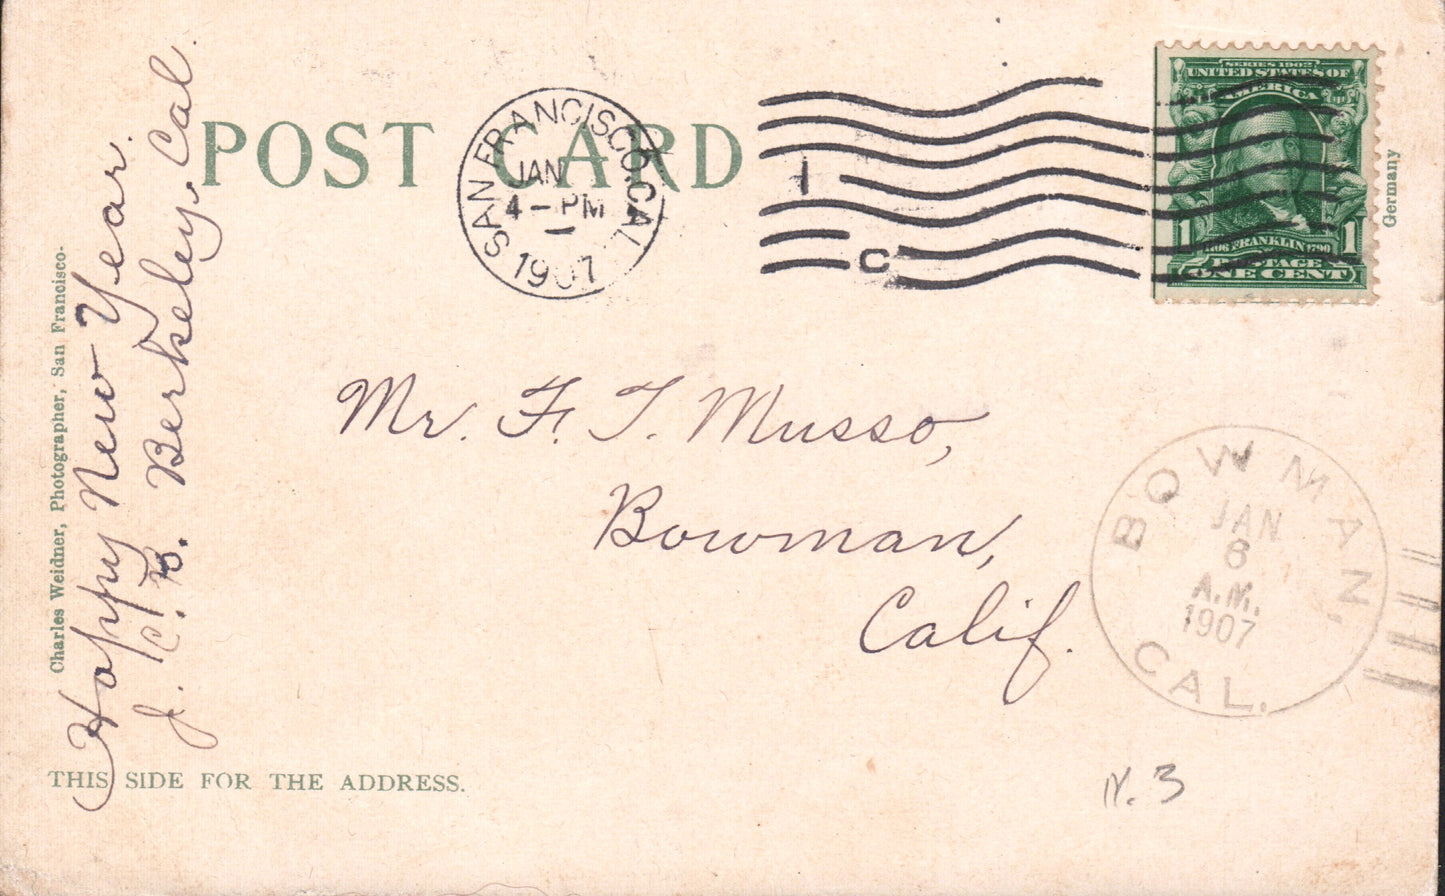 POST CARD
SAN FRANCISCO, CAL.
JAN
4 - PM
1907
1
C
SERIES 1902
UNITED STATES OF
AMERICA
1706 FRANKLIN 1790
1 1
POSTAGE
ONE CENT
Germany
Mr. F. T. Musso,
Bowman,
Calif.
BOWMAN,
JAN
6
A.M.
1907
CAL.
Charles Weidner, Photographer, San Francisco.
Happy New Year.
J. C. B. Berkeley, Cal.
THIS SIDE FOR THE ADDRESS.
N. 3